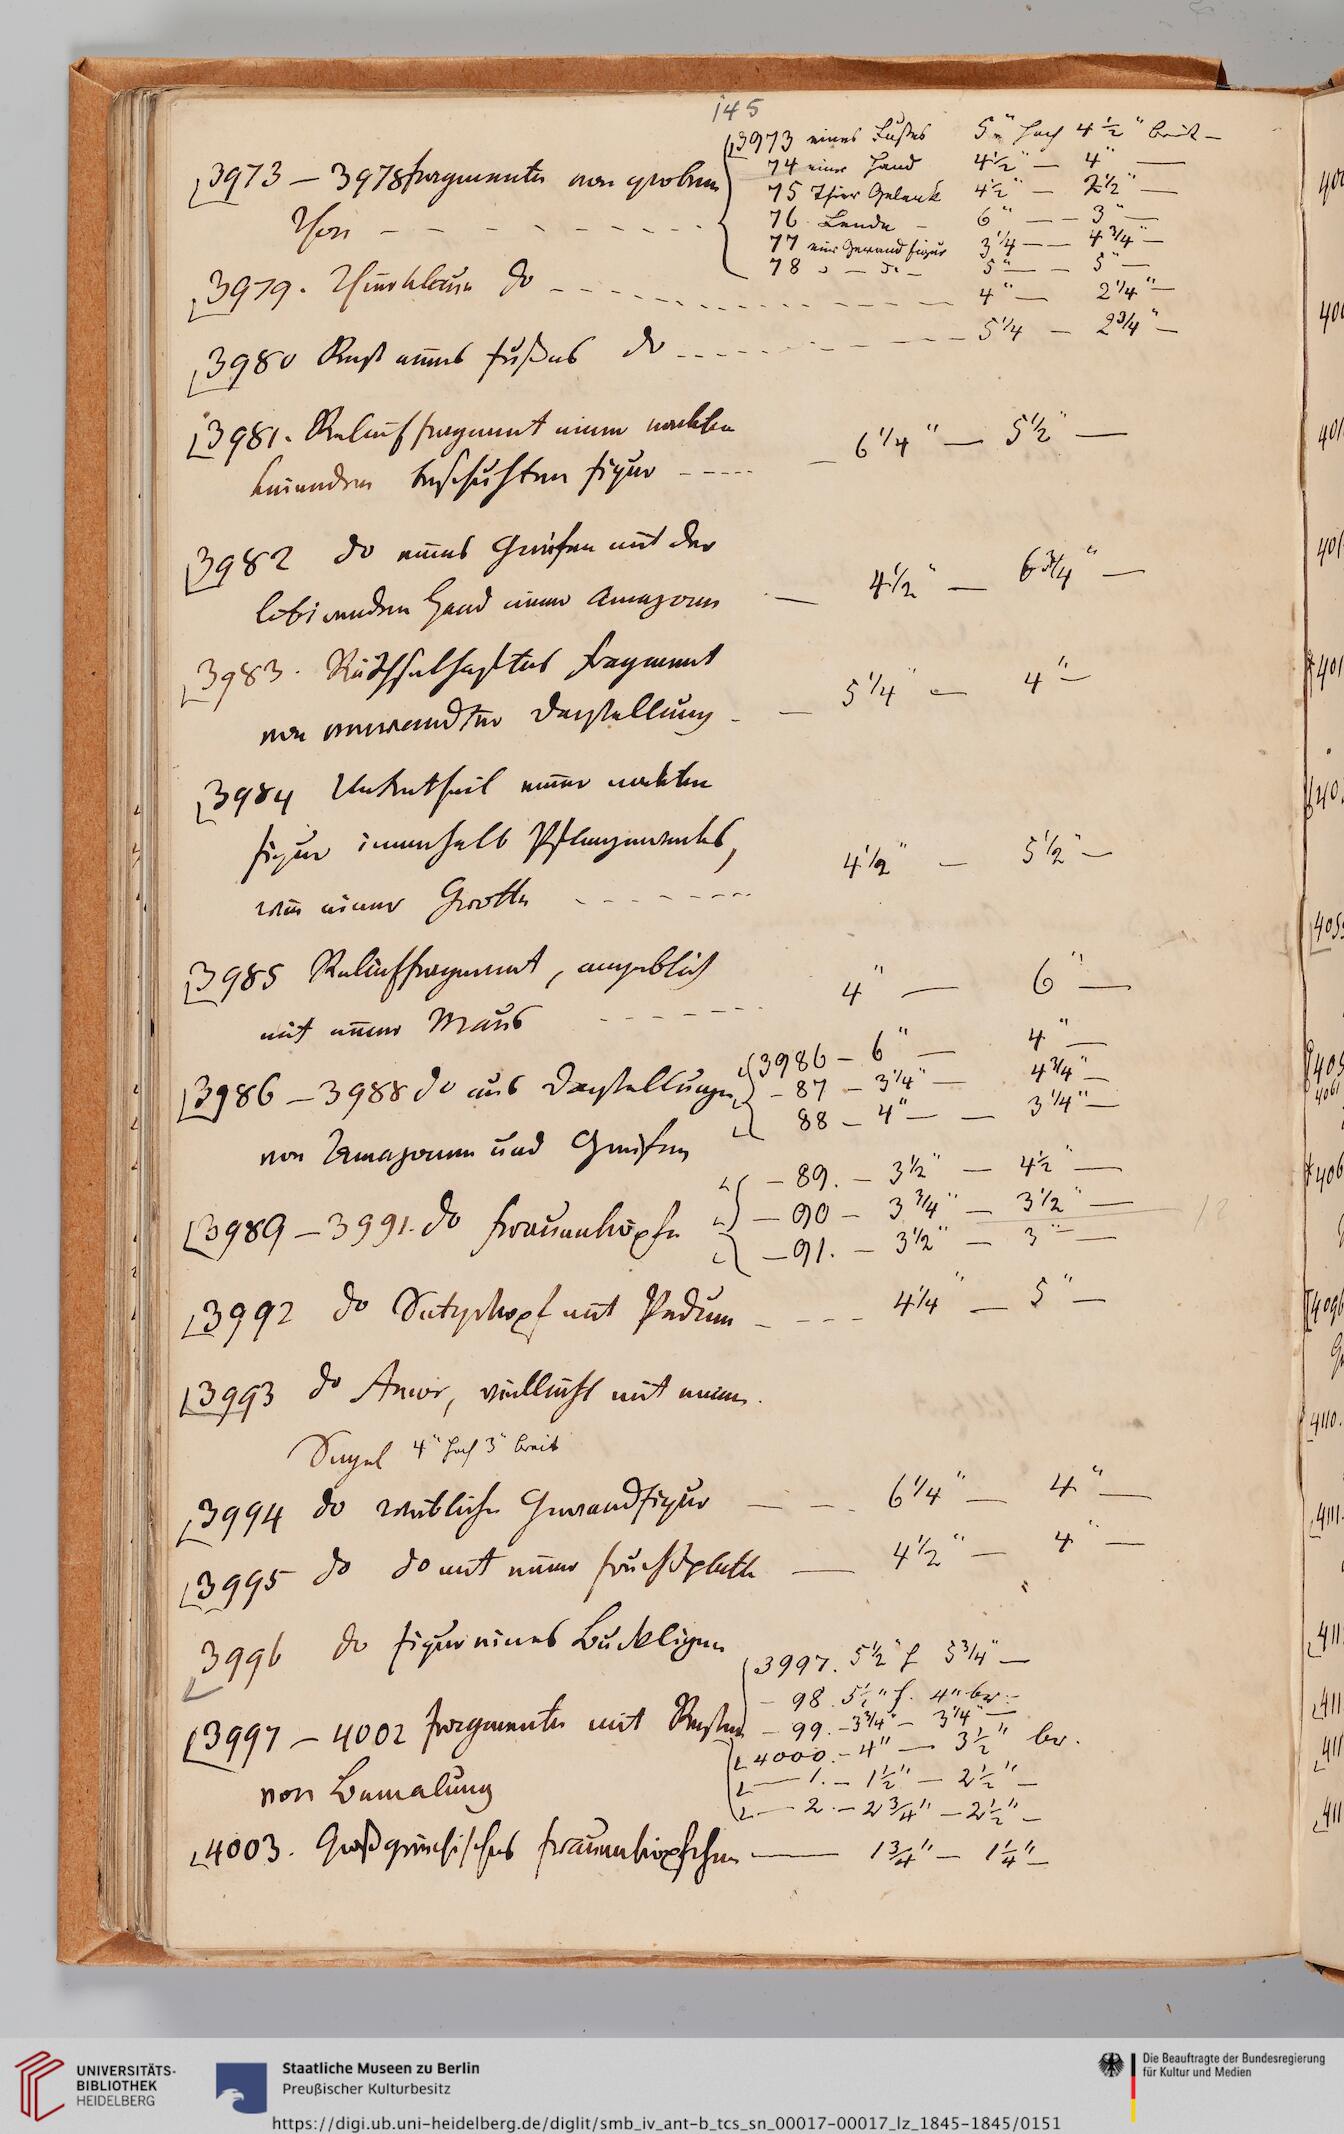 145
3973 – 3978 Fragmente von grobem
Thon
3973 eines Fußes 5" hoch 4 1/2" breit –
74 einer Hand 4 1/2" – 4" –
75 Thier Gelenk 4 1/2" – 2 1/2" –
76 Lende – 6" – – 3" –
77 eine Gewandfigur 3 1/4 – – 4 3/4" –
78 do – do – 5" – – 5" –
3979. Thierklaue do 4" – 2 1/4" –
3980 Rest eines Fußes do 5 1/4 – 2 3/4" –
3981. Relieffragment einer nackten
knieenden beschuhten Figur – 6 1/4" – 5 1/2" –
3982 do eines Greifen mit der
Hand einer Amazone – 4 1/2" – 6 3/4" –
3983. Räthselhaftes Fragment
von verwandter Darstellung – 5 1/4" – 4" –
3984 Untertheil einer nackten
Figur innerhalb Pflanzenwerks,
wie einer Grotte 4 1/2" – 5 1/2" –
3985 Relieffragment, angeblich
mit einer Maus 4" – 6" –
3986 – 3988 do aus Darstellungen
von Amazonen und Greifen
3986 – 6" – 4" –
– 87 – 3 1/4" – 4 3/4" –
88 – 4" – – 3 1/4" –
3989 – 3991. do Frauenköpfe
– 89. – 3 1/2" – 4 1/2" –
– 90 – 3 3/4" – 3 1/2" –
– 91. – 3 1/2" – 3" –
3992 do Satyrkopf mit Pedum – 4 1/4" – 5" –
3993 do Amor, vielleicht mit einem
Segel 4" hoch 3" breit
3994 do weibliche Gewandfigur – 6 1/4" – 4" –
3995 do do mit einer Fruchtplatte – 4 1/2" – 4" –
3996 do Figur eines Buckligen
3997 – 4002 Fragmente mit Resten
von Bemalung
3997. 5 1/2" h 5 3/4" –
– 98. 5 1/2" h. 4" br. –
– 99. – 3 3/4" – 3 1/4" –
4000. – 4" – 3 1/2" br.
– 1. – 1 1/2" – 2 1/2" –
– 2. – 2 3/4" – 2 1/2" –
4003. Großgriechisches Frauenköpfchen – 1 3/4" – 1 1/4" –
UNIVERSITÄTS-
BIBLIOTHEK
HEIDELBERG
Staatliche Museen zu Berlin
Preußischer Kulturbesitz
Die Beauftragte der Bundesregierung
für Kultur und Medien
https://digi.ub.uni-heidelberg.de/diglit/smb_iv_ant-b_tcs_sn_00017-00017_lz_1845-1845/0151